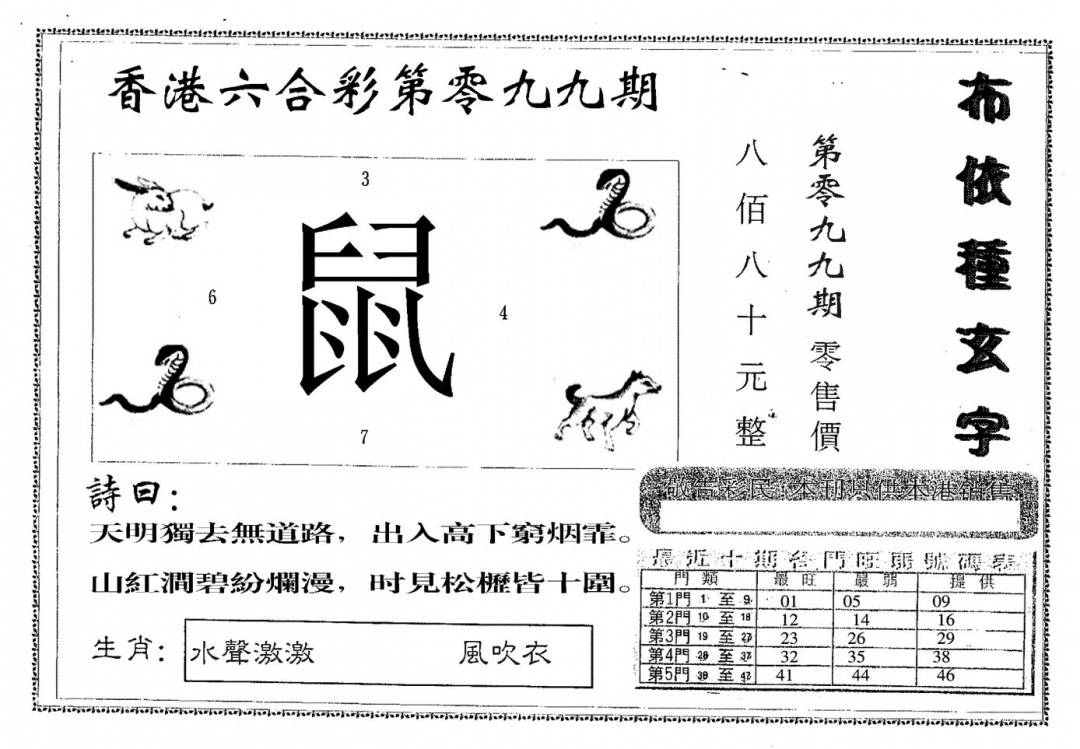 香港六合彩第零九九期
布依種玄字
第零九九期零售價
八佰八十元整
3
鼠
6
4
7
詩曰：
天明獨去無道路，出入高下窮烟霏。
山紅澗碧紛爛漫，时見松櫪皆十圍。
生肖：水聲激激 風吹衣
敬告彩民:本刊只供本港銷售
最近十期各門旺弱號碼表
門類 最旺 最弱 提供
第1門 1 至 9 01 05 09
第2門 10 至 18 12 14 16
第3門 19 至 27 23 26 29
第4門 28 至 37 32 35 38
第5門 38 至 47 41 44 46